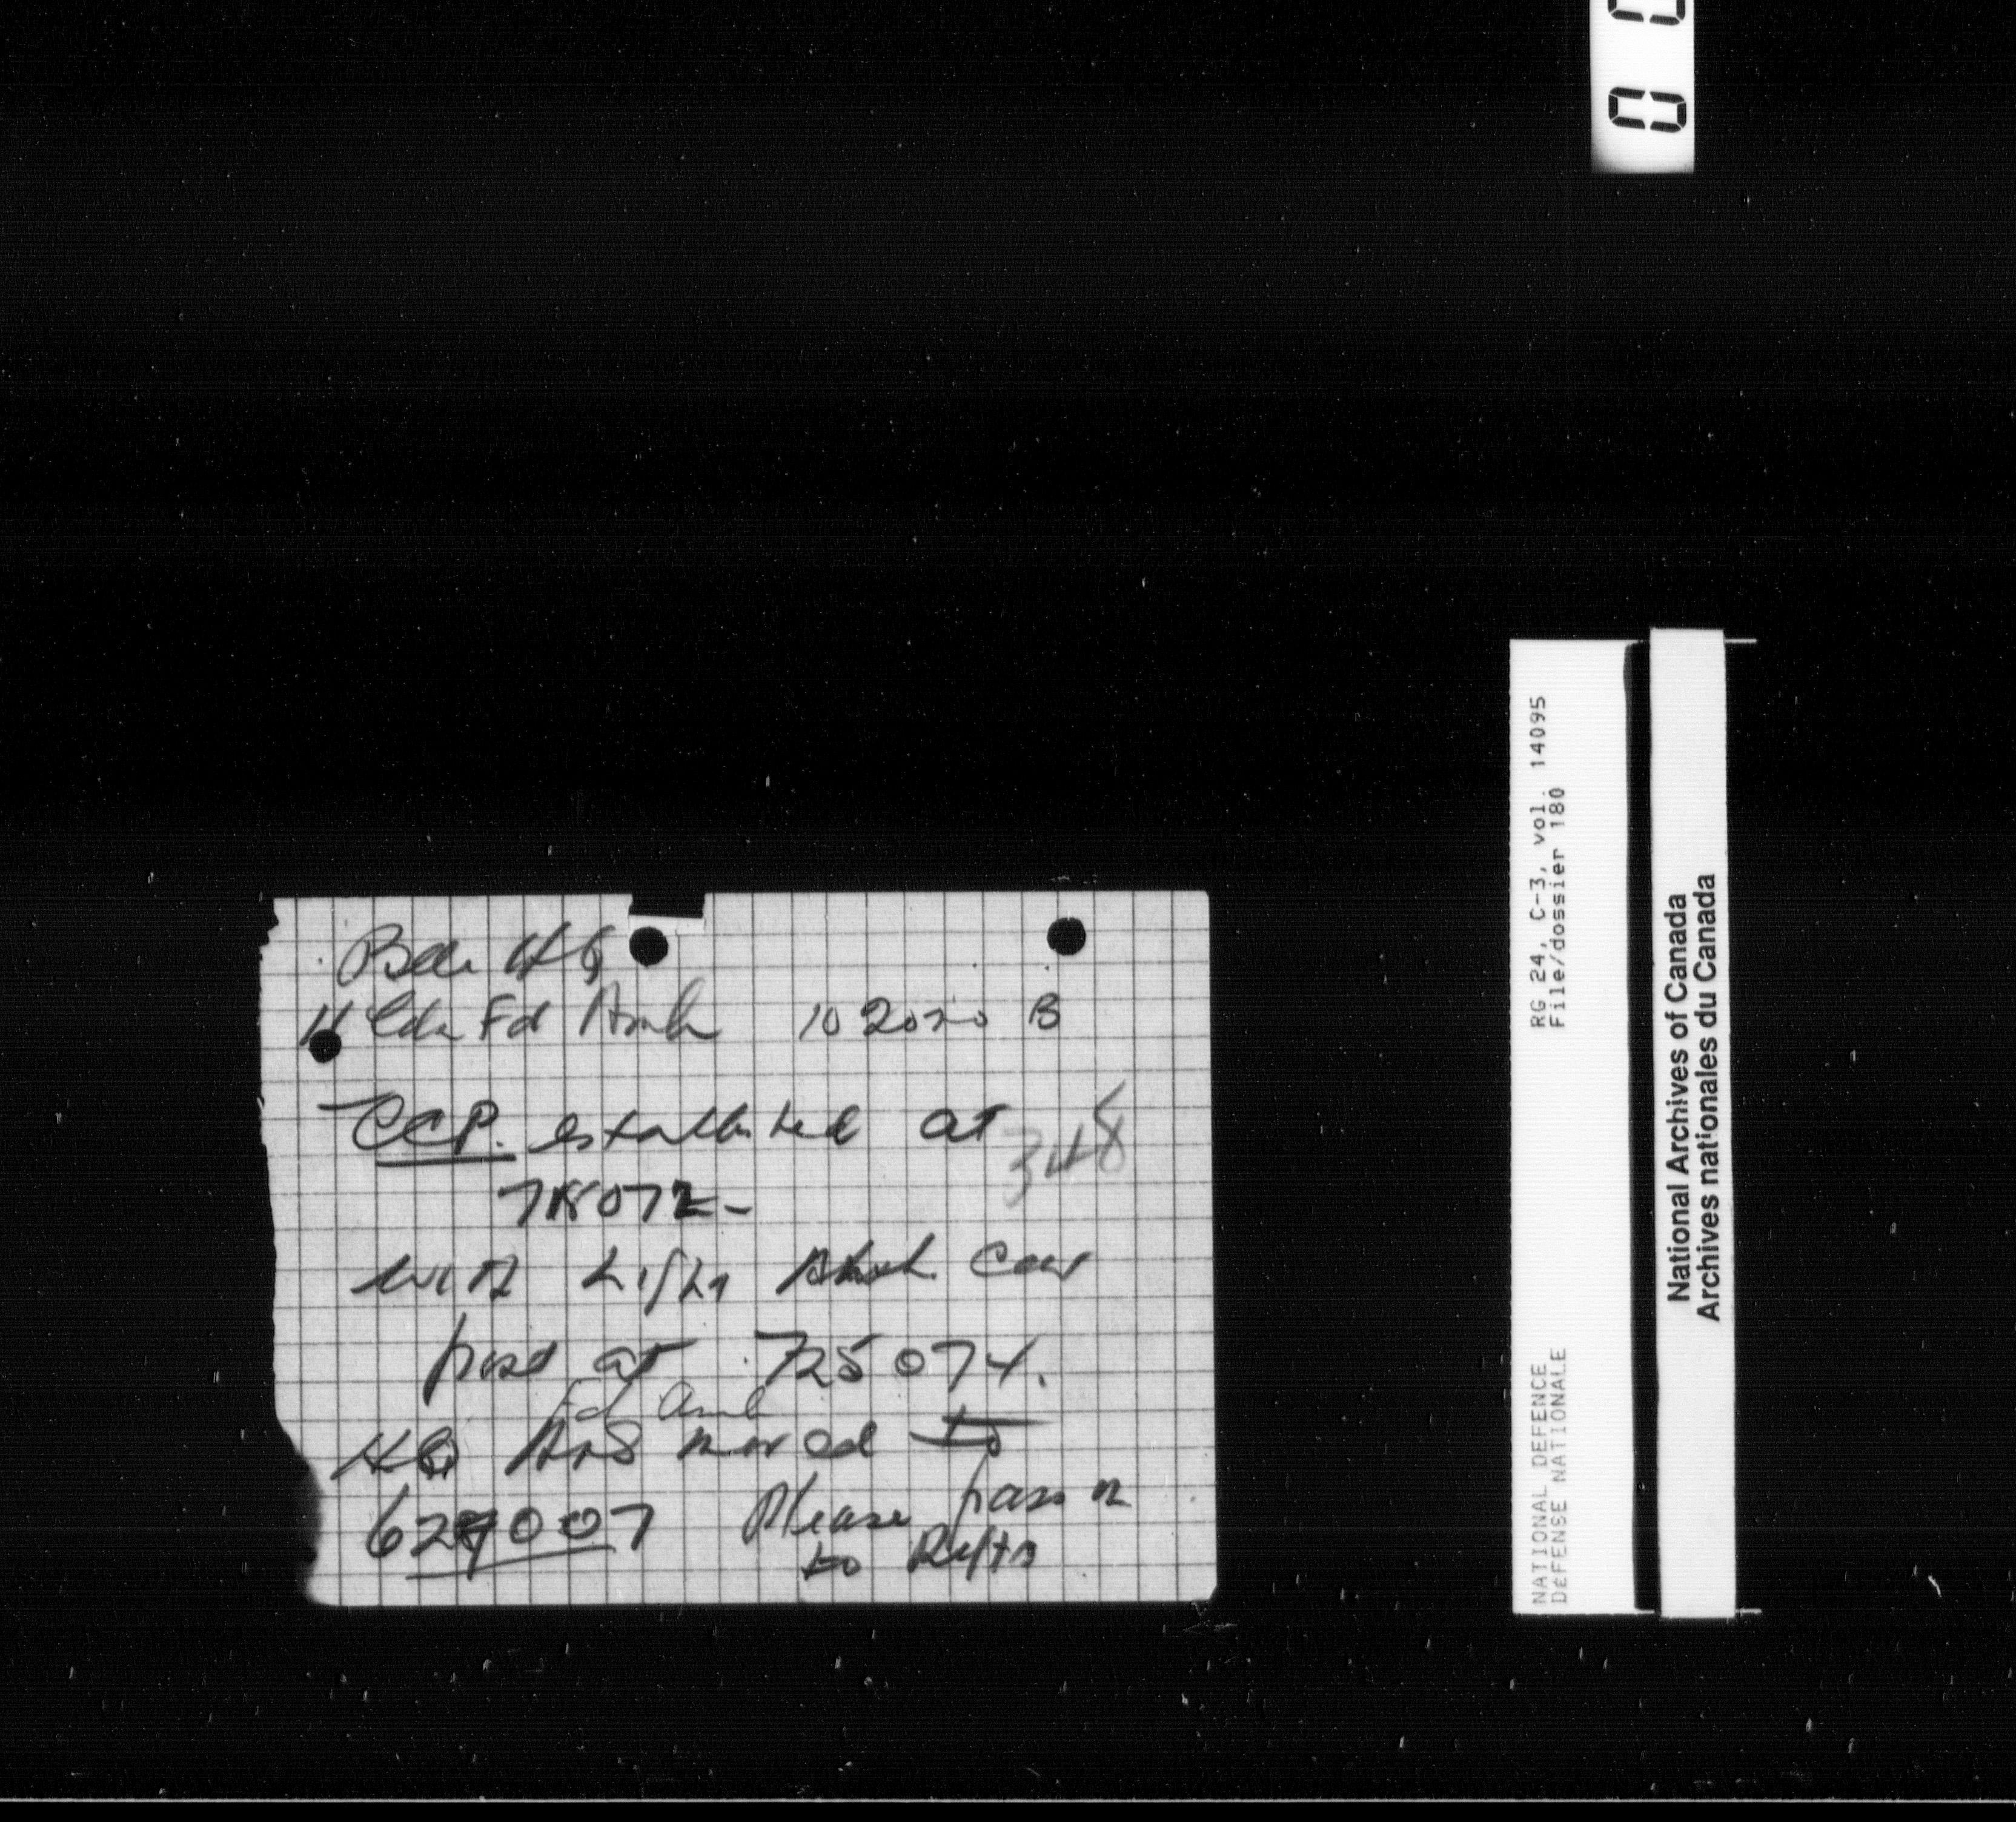 Bde HQ
11 Cdn Fd Amb 102020 B
CCP. established at
348
718072-
with Light Amb Car
post at 725074.
Fd Amb
HQ has moved to
629007 Please pass on
to Rgts
RG 24, C-3, vol. 14095
File/dossier 180
NATIONAL DEFENCE
DÉFENSE NATIONALE
National Archives of Canada
Archives nationales du Canada